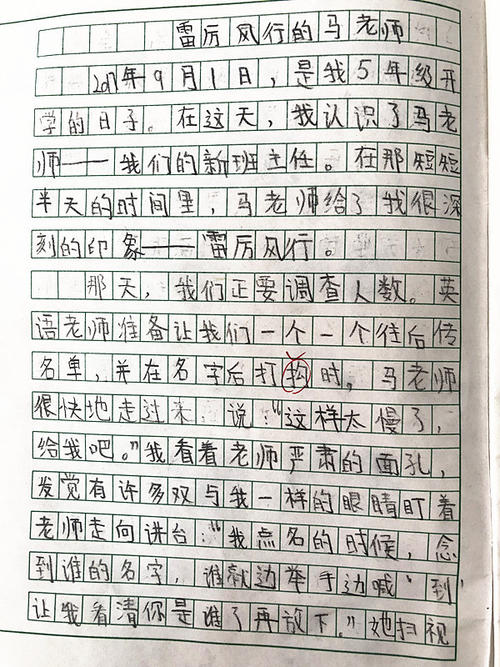 雷厉风行的马老师
2017年9月1日，是我5年级开
学的日子。在这天，我认识了马老
师——我们的新班主任。在那短短
半天的时间里，马老师给了我很深
刻的印象——雷厉风行。
那天，我们正要调查人数。英
语老师准备让我们一个一个往后传
名单，并在名字后打挽时，马老师
很快地走过来，说：“这样太慢了，
给我吧。”我看着老师严肃的面孔，
发觉有许多双与我一样的眼睛盯着
老师走向讲台：“我点名的时候，念
到谁的名字，谁就边举手边喊‘到’
让我看清你是谁了再放下。”她扫视